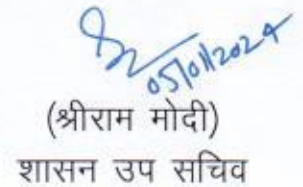 05/01/2024
(श्रीराम मोदी)
शासन उप सचिव